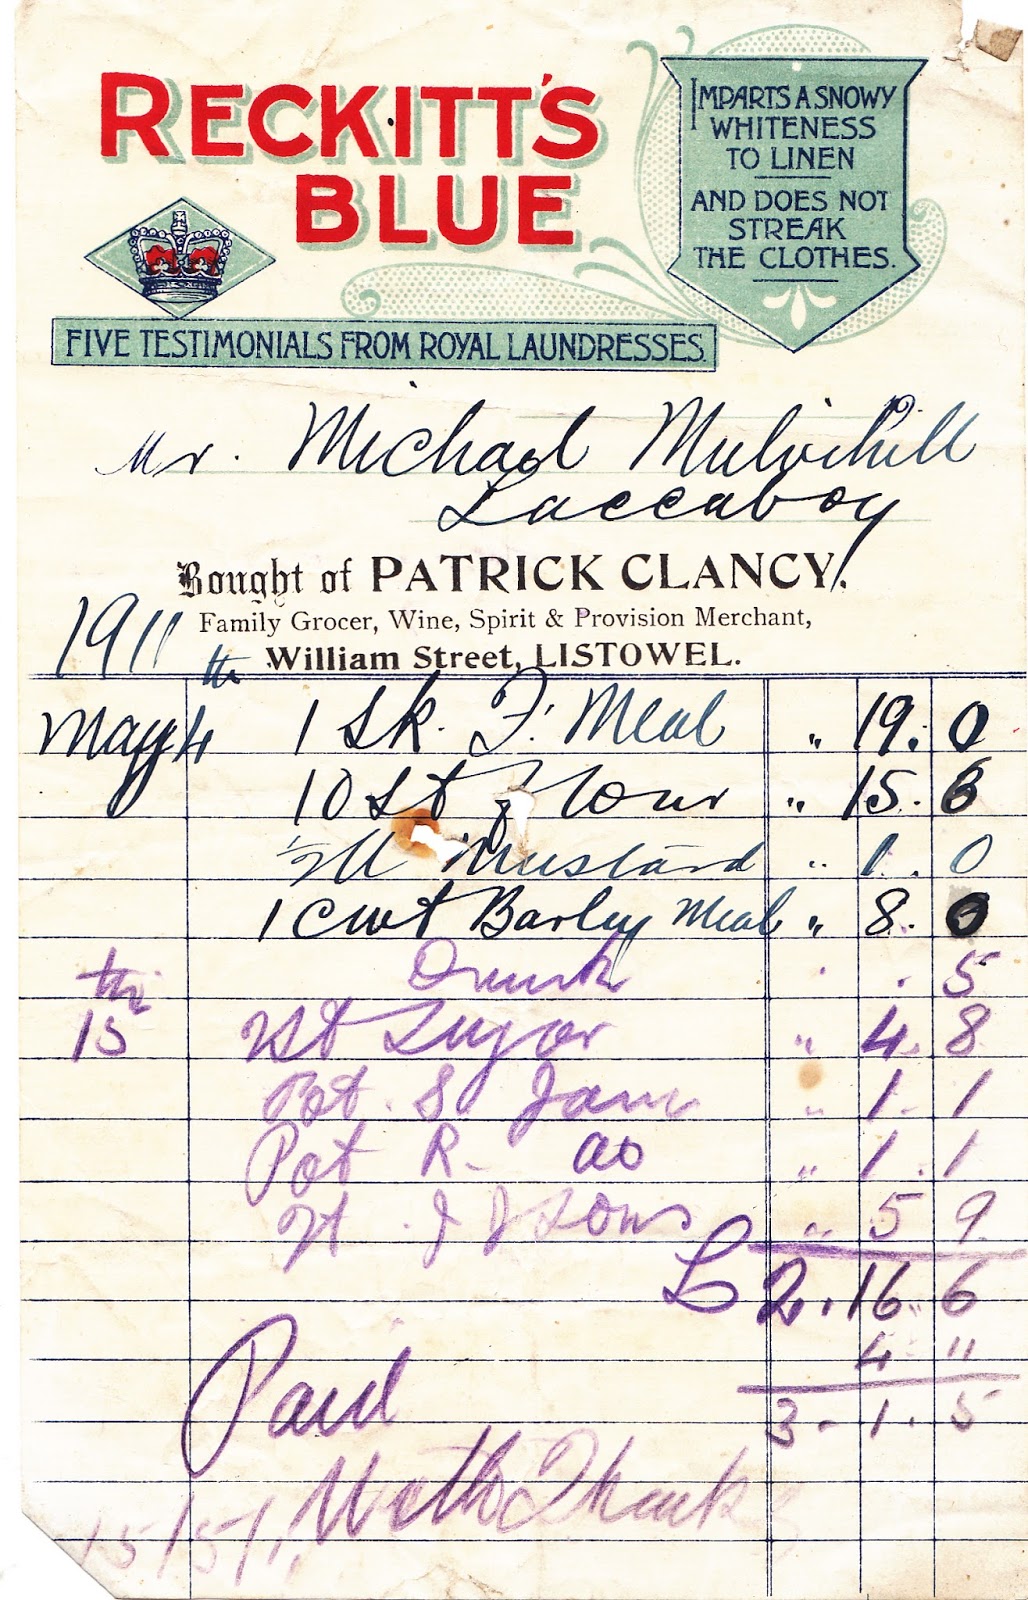 RECKITT'S
BLUE
IMPARTS A SNOWY
WHITENESS
TO LINEN
AND DOES NOT
STREAK
THE CLOTHES.
FIVE TESTIMONIALS FROM ROYAL LAUNDRESSES.
Mr. Michael Mulvihill
Laccaboy
Bought of PATRICK CLANCY,
Family Grocer, Wine, Spirit & Provision Merchant,
1911 William Street, LISTOWEL.
May 4th 1 Sk. F. Meal " 19. 0
10 St Flour " 15. 6
½ lb Mustard " 1. 0
1 cwt Barley Meal " 8. 0
. . 5
15th 2 St Sugar " 4. 8
Pot. S Jam " 1. 1
Pot R. do " 1. 1
" 5 9
£ 2. 16. 6
4 11
3 - 1. 5
Paid
With Thanks
15/5/11